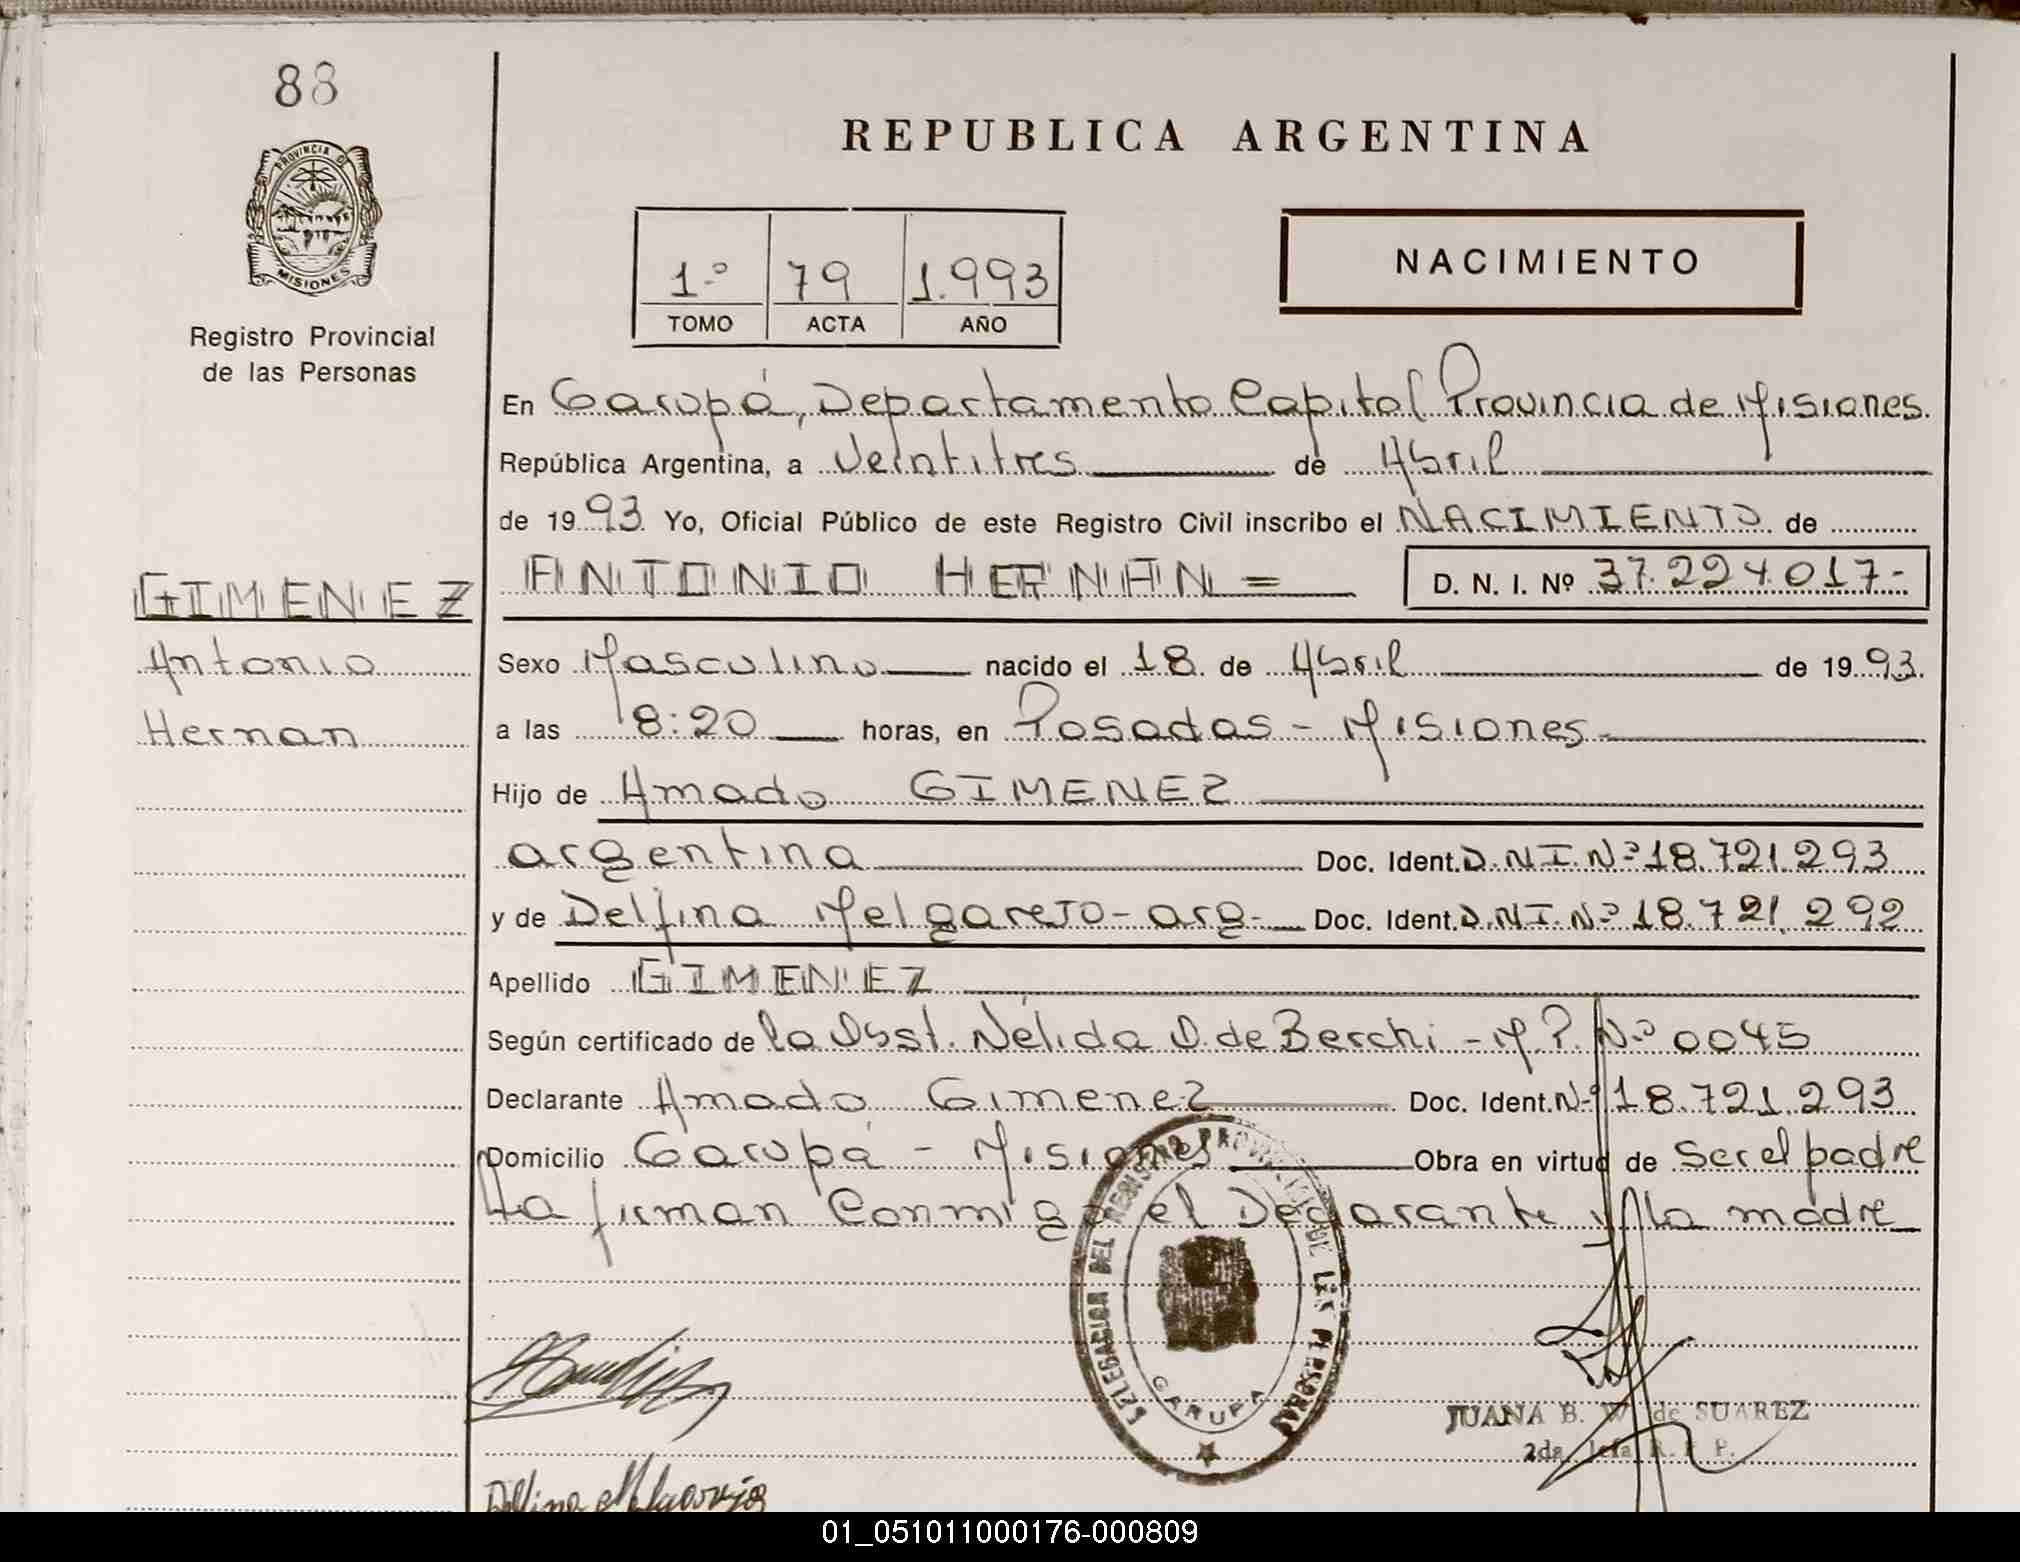 88
REPUBLICA ARGENTINA
PROVINCIA D
MISIONES
Registro Provincial
de las Personas
1º 79 1.993
TOMO ACTA AÑO
NACIMIENTO
En Garupá, Departamento Capital Provincia de Misiones.
República Argentina, a Veintitres de Abril
de 1993 Yo, Oficial Público de este Registro Civil inscribo el NACIMIENTO de
GIMENEZ
Antonio
Hernan
ANTONIO HERNAN = D. N. I. Nº 37.224.017-
Sexo Masculino nacido el 18 de Abril de 1993.
a las 8:20 horas, en Posadas - Misiones
Hijo de Amado GIMENEZ
argentina Doc. Ident. D.N.I.Nº 18.721.293
y de Delfina Melgarejo - arg- Doc. Ident. D.N.I.Nº 18.721.292
Apellido GIMENEZ
Según certificado de la Obst. Nélida D. de Berchi - M.P. Nº 0045
Declarante Amado Gimenez Doc. Ident. Nº 18.721.293
Domicilio Garupá - Misiones Obra en virtud de Ser el padre
La firman Conmigo el Declarante y la madre
DELEGACION DEL REGISTRO PROVINCIAL DE LAS PERSONAS
GARUPA
JUANA B. W. de SUAREZ
2da. Jefa R. P. P.
Delfina Melgarejo
01_051011000176-000809